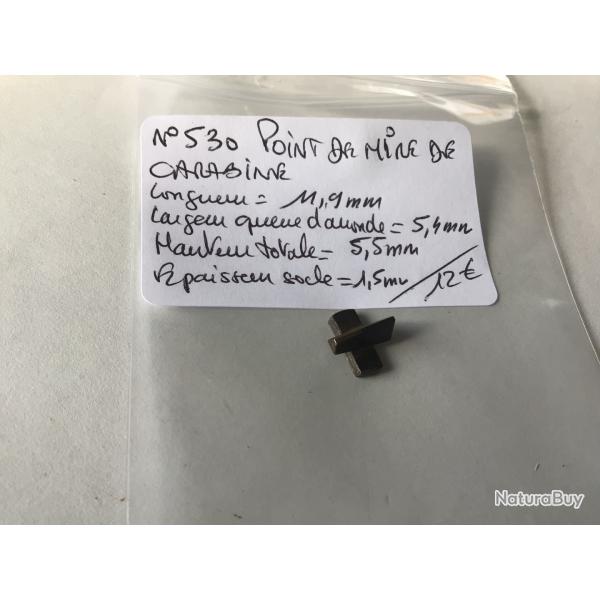 N° 530 POINT DE MIRE DE
CARABINE
Longueur = 11,9mm
Largeur queue d'aronde = 5,4mm
Hauteur totale = 5,5mm
Epaisseur socle = 1,5mm / 12€
NaturaBuy